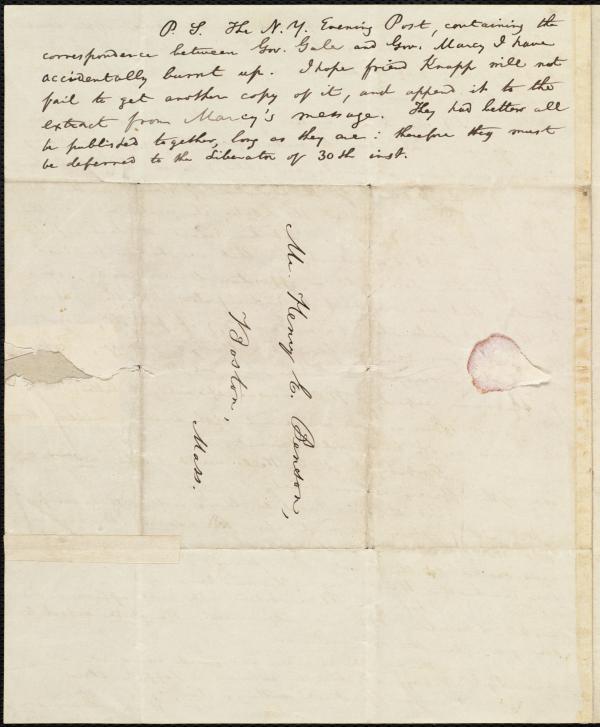 P. S. The N. Y. Evening Post, containing the
correspondence between Gov. Gale and Gov. Marcy I have
accidentally burnt up. I hope friend Knapp will not
fail to get another copy of it, and append it to the
extract from Marcy's message. They had better all
be published together, long as they are: therefore they must
be deferred to the Liberator of 30th inst.
Mr. Henry E. Benson,
Boston,
Mass.